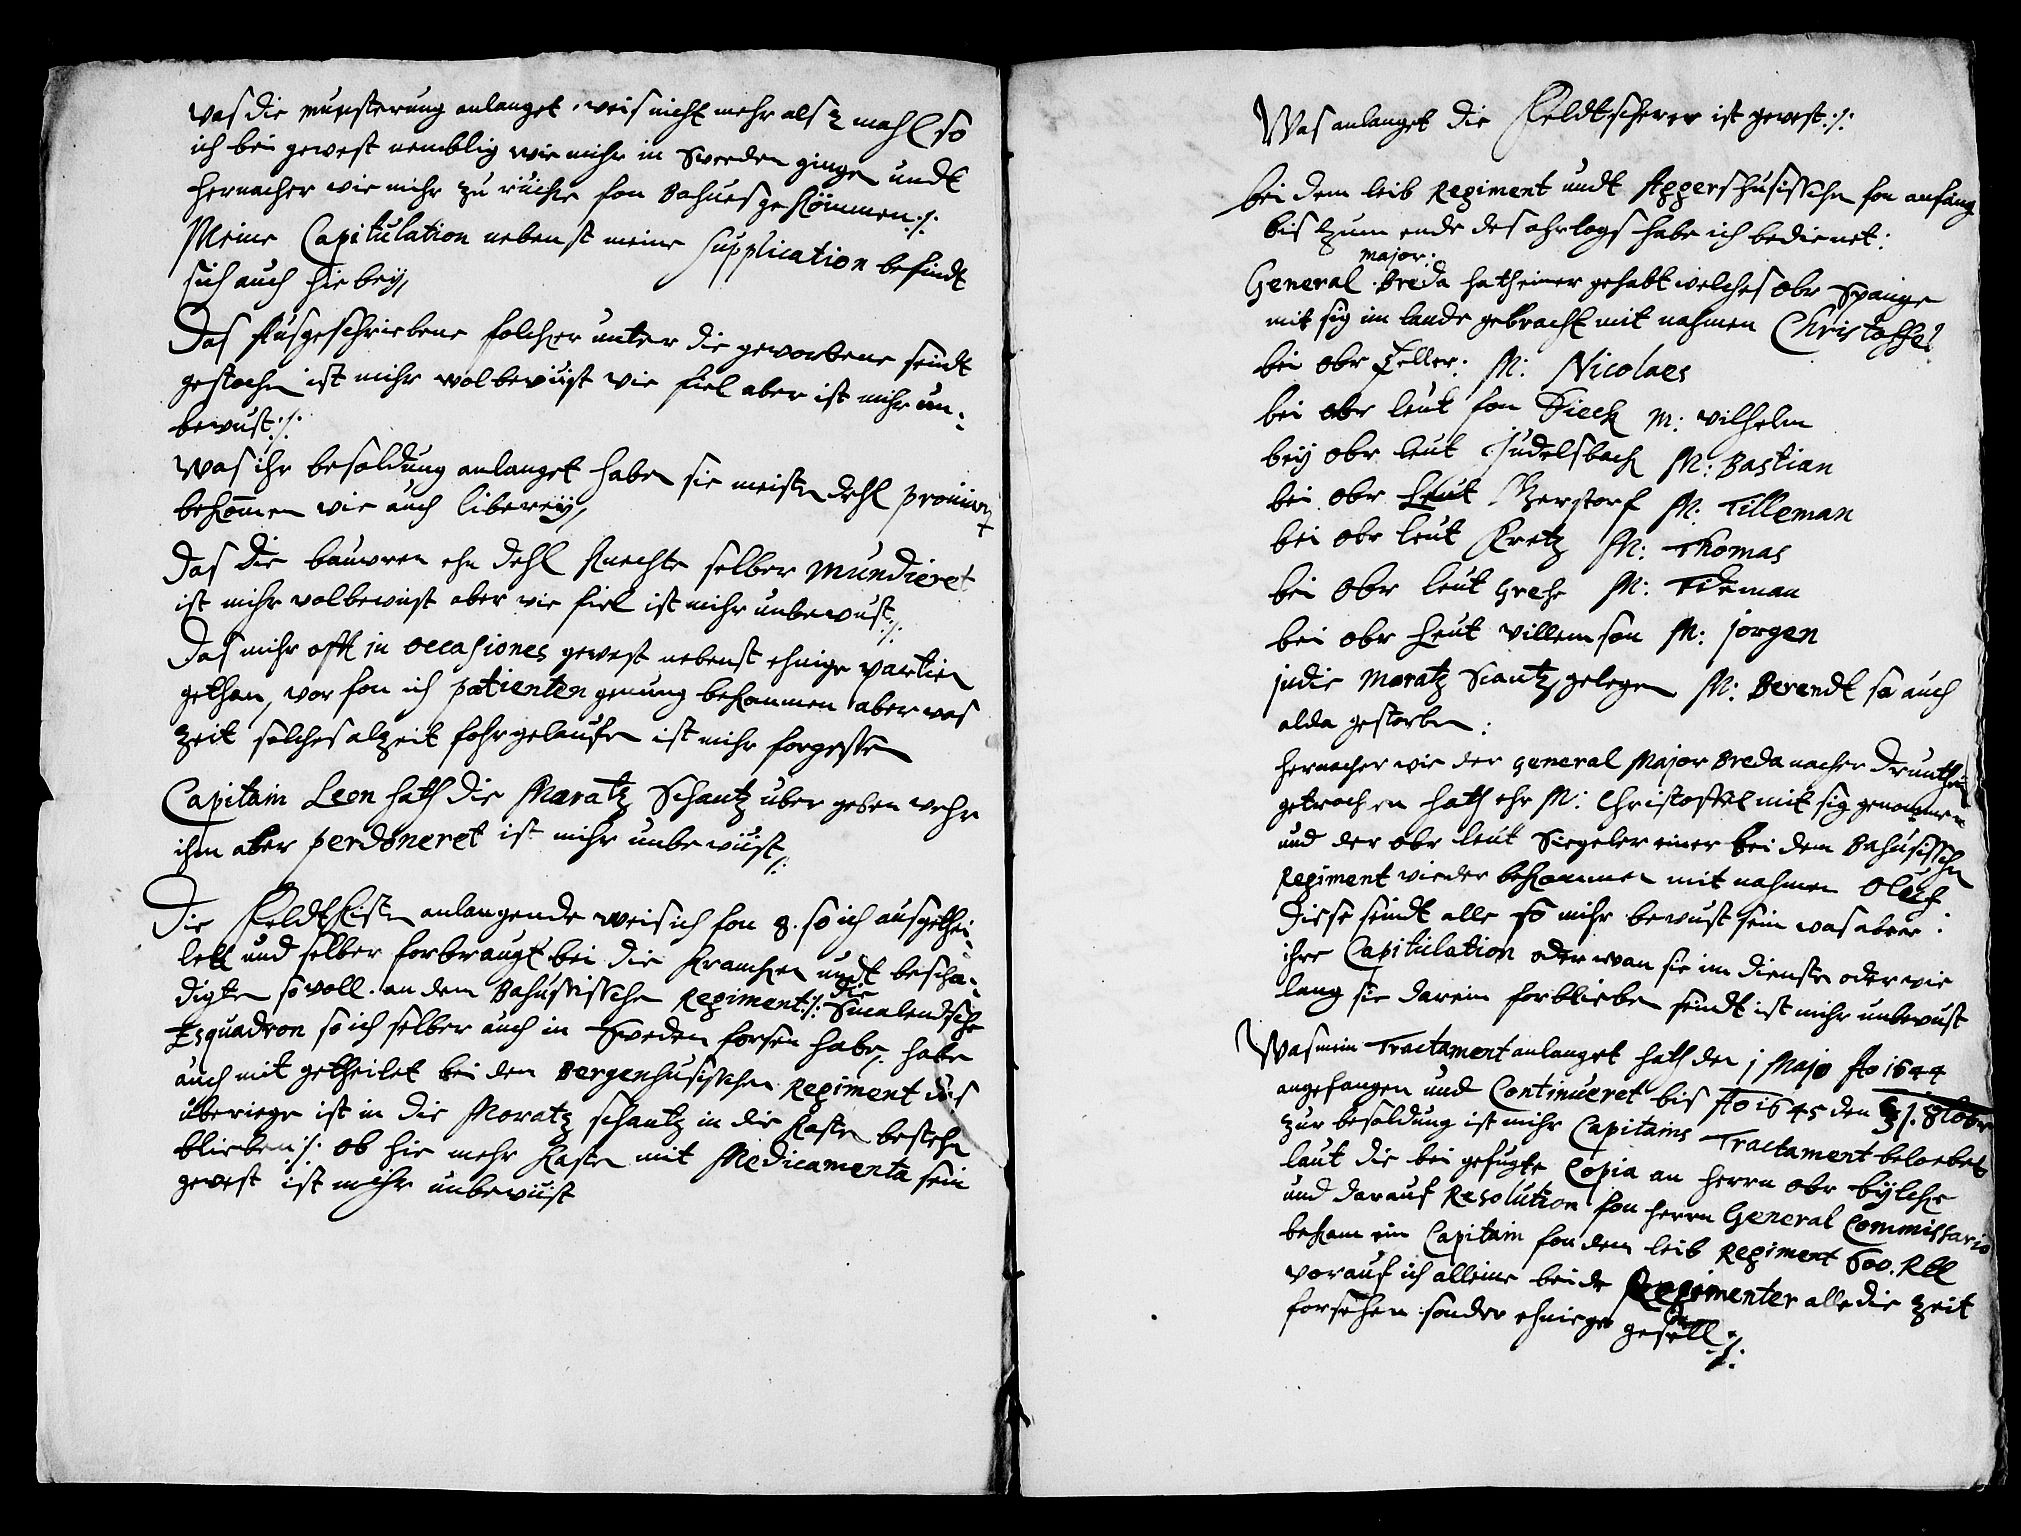 Was die munsterung anlanget, weis nicht mehr als 2 mahl so
ich bei gewest nemblig wie mihr in Sweeden ginge undt
hernacher wie mihr zu rücke fon Bahues ge kömmen:/:
Meine Capitulation nebenst meine Supplication befindt
sich auch hie bey,
Das Ausgeschriebene folcker unter die geworbene seindt
gestochen ist mihr wol bewüst wie fiel aber ist mihr un-
bewust:/:
Was ihr besoldung anlanget haben sie meisten dehl proviant
bekommen wie auch liberey,
Das die bauwren ehn dehl Knechte selber Mundieret
ist mihr wol bewüst aber wie fiel ist mihr unbewust:/:
Das mihr offt in occasiones gewest nebenst ehnige partien
gethan, wor fon ich patienten genung bekommen aber was
zeit solches alzeit fohrgelaufen ist mihr forgessen
Capitain Leon hath die Maratz Schantz über geben wehr
ihm aber perdoneret ist mihr unbewüst:/:
Die Feldt Kisten anlangende weis ich fon 8. so ich ausgethei-
lett und selber forbraugt bei die Krancken undt beschä-
digten so woll. an dem Bahussischen Regiment:/: die Smalendsche
Esquadron so ich selber auch in Sweden forsen habe, habe
auch mit getheilet bei den Bergenhusischen Regiment das
überiege ist in die Moratz schantz in die Kasten bestehn
blieben:/: ob hie mehr Kasten mit Medicamenta sein
gewest ist mihr unbewüst
Was anlanget die Feldtscherer ist gewest:/:
bei dem leib Regiment undt Aggershusischen fon anfang
bis zum ende des ohrlogs habe ich bedienet:
major:
General Breda hath einer gehabt welches obr Spange
mit sig im lande gebracht mit nahmen Christoffel
bei obr Zeller: M: Nicolaes
bei obr leut fon Dieck M: wilhelm
bey obr leut Judelsbach M: Bastian
bei obr leut Merstorf M: Tilleman
bei obr leut Kretz M: Thomas
bei obr leut Grehe M: Tideman
bei obr leut Willemson M: jorgen
in die Moratz Scantz gelegen M: Berendt so auch
alda gestorben:
hernacher wie der General Major Breda nacher Drunthim
getrocken hath ehr M: Christoffel mit sig genommen
und der obr leut Siegeler einer bei dem Bahusischen
Regiment wieder bekommen mit nahmen Oluf.
Disse seindt alle so mihr bewust sein was aber
ihre Capitulation oder wan sie im dienste oder wie
lang sie darein forblieben seindt ist mihr unbewust
Was mein Tractament anlanget hath den j Majo Ao 1644
angefangen und Continueret bis Ao 1645 den 31. 8tobr
zur besoldung ist mihr Capitains Tractament beloebet
laut die bei gefugte Copia an herrn obr bylche
und darauf Resolution fon herrn General Commissario
bekam ein Capitain fon dem leib Regiment 600. Rtl
worauf ich alleine beide Regimenter alle die zeit
forsehen sonder ehniege gesell:/: